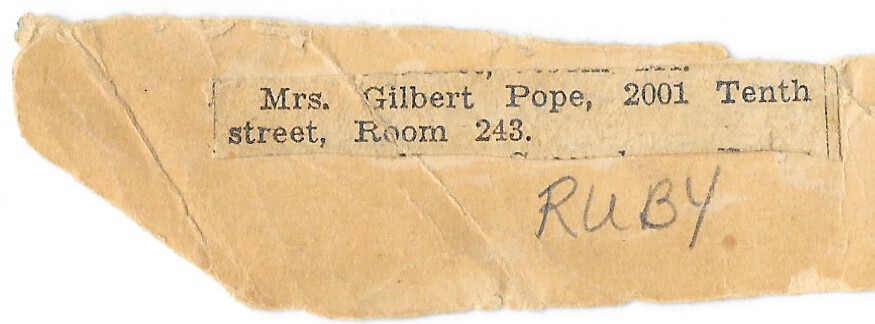 Mrs. Gilbert Pope, 2001 Tenth
street, Room 243.
RUBY